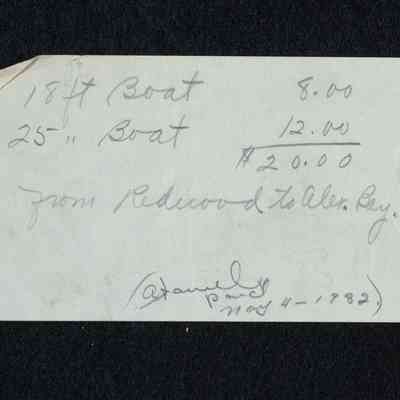 18 ft Boat 8.00
25 " Boat 12.00
$20.00
From Redwood to Alex. Bay.
paid
Nov 4-1932.)